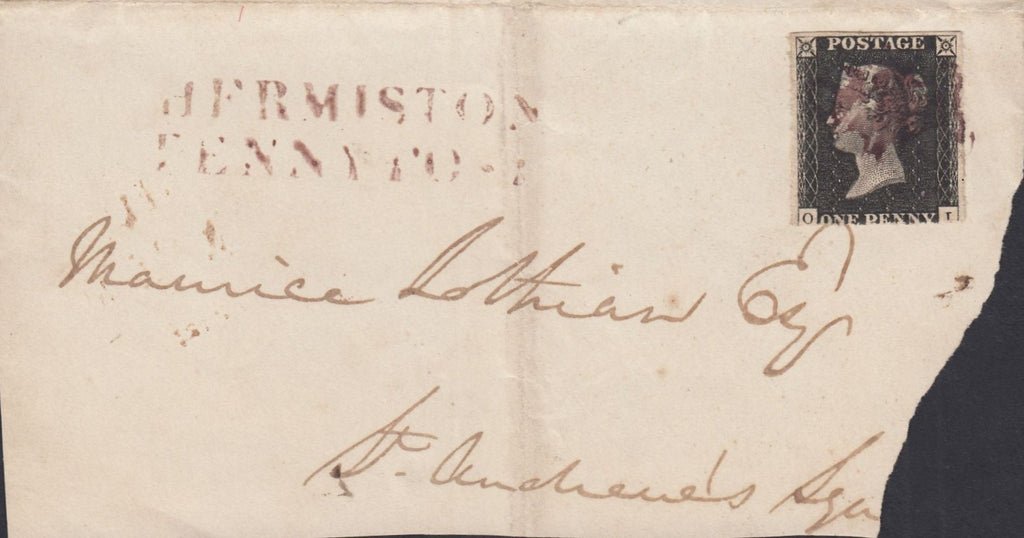 POSTAGE
HERMISTON
PENNY POST
O ONE PENNY I
Maurice Lothian Esq
St. Andrew's Squ